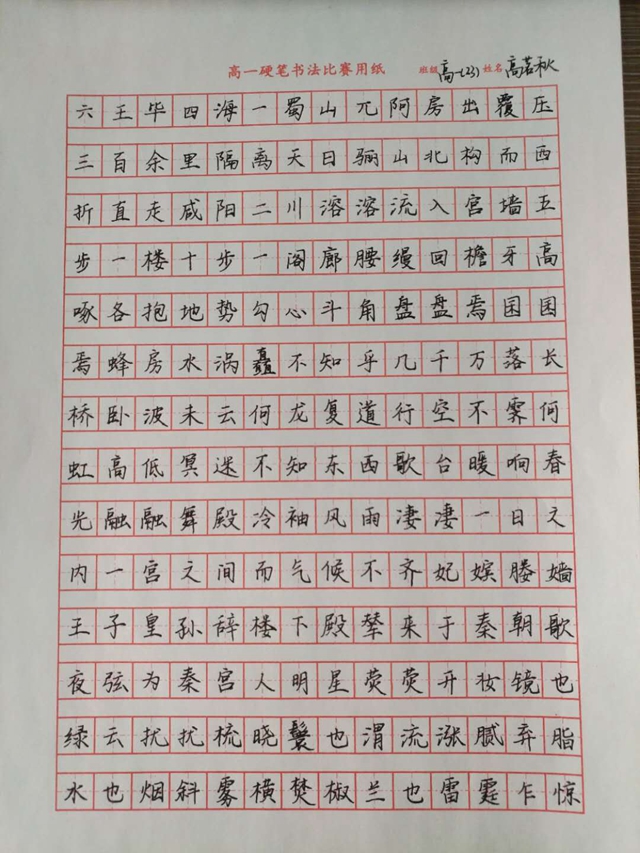 高一硬笔书法比赛用纸 班级 高一(23) 姓名 高若秋
六王毕四海一蜀山兀阿房出覆压
三百余里隔离天日骊山北构而西
折直走咸阳二川溶溶流入宫墙五
步一楼十步一阁廊腰缦回檐牙高
啄各抱地势勾心斗角盘盘焉囷囷
焉蜂房水涡矗不知乎几千万落长
桥卧波未云何龙复道行空不霁何
虹高低冥迷不知东西歌台暖响春
光融融舞殿冷袖风雨凄凄一日之
内一宫之间而气候不齐妃嫔媵嫱
王子皇孙辞楼下殿辇来于秦朝歌
夜弦为秦宫人明星荧荧开妆镜也
绿云扰扰梳晓鬟也渭流涨腻弃脂
水也烟斜雾横焚椒兰也雷霆乍惊